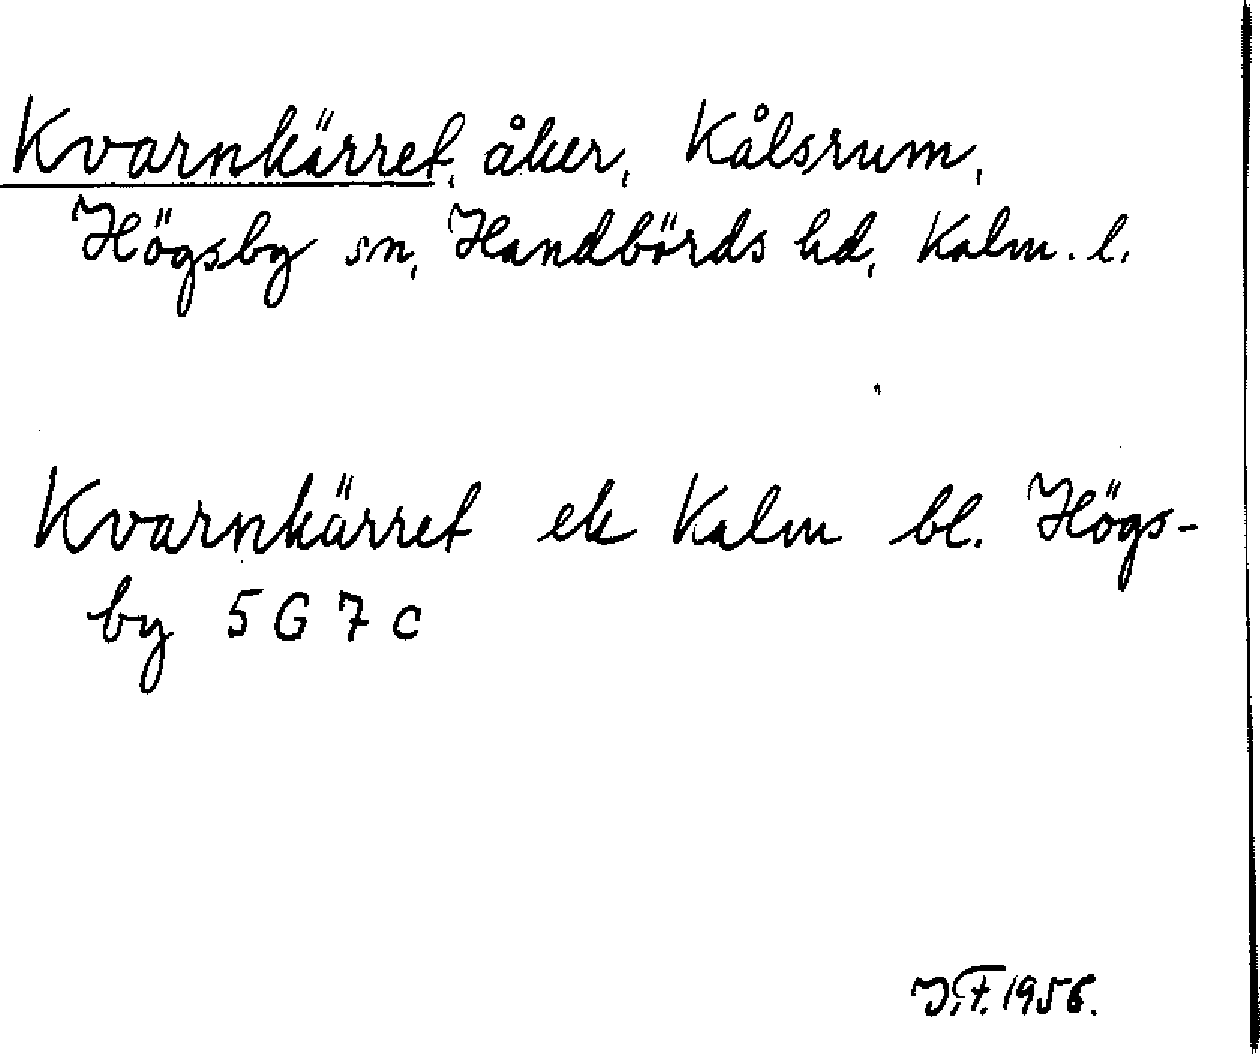 Kvarnkärret, åker, Kålsrum,
Högsby sn, Handbörds hd, Kalm. l.
Kvarnkärret ek Kalm bl. Högs-
by 5 G 7 c
J.F. 1956.